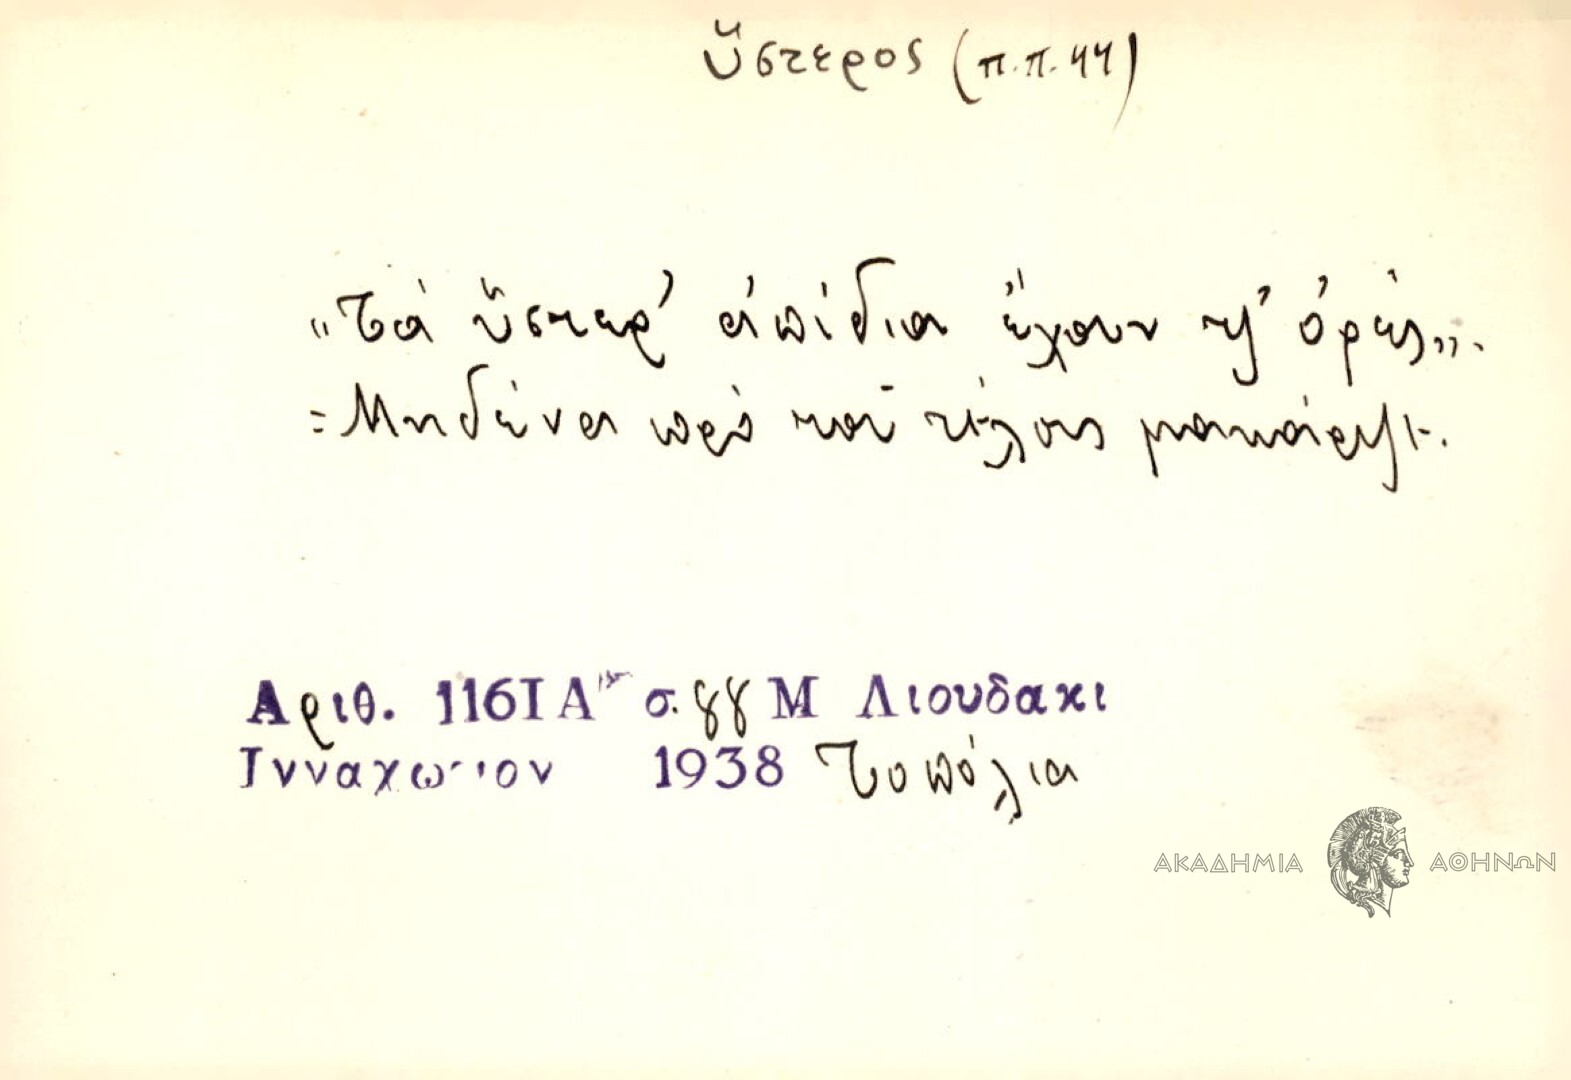 ὕστερος (π.π. 44)
"Τὰ ὕστερ' ἀπίδια ἔχουν τσ' ὀρές".
= Μηδένα πρὸ τοῦ τέλους μακάριζε.
Ἀριθ. 1161 Α σ. 88 Μ Λιουδακι
Ινναχωριον 1938 Τοπόλια
ΑΚΑΔΗΜΙΑ ΑΘΗΝΩΝ